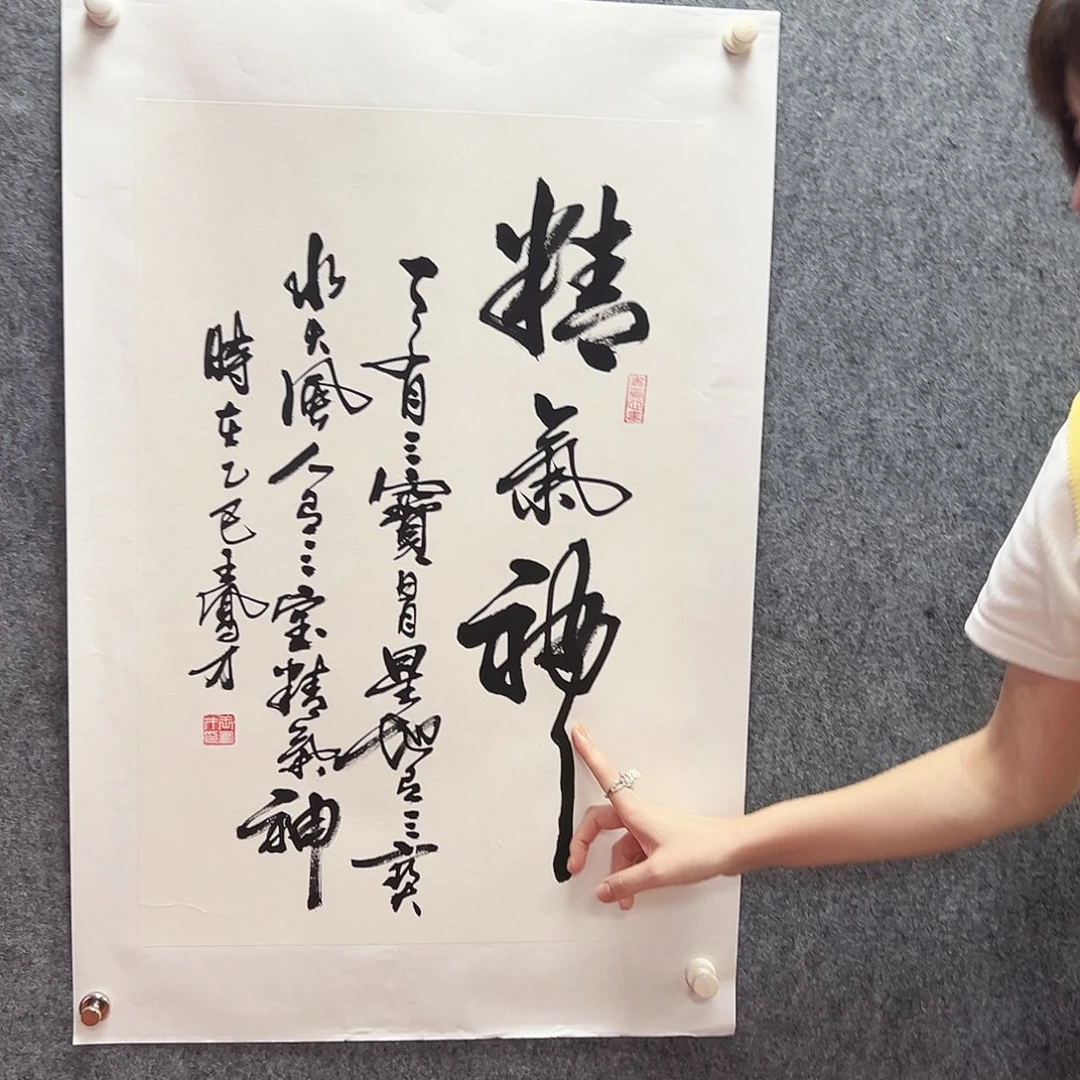 精氣神
天有三寶日月星地有三寶
水火風人有三宝精氣神
時在乙巳王鳳才